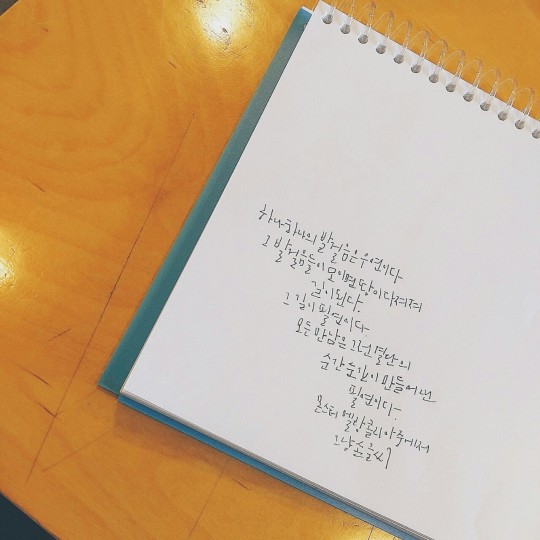 하나하나의 발걸음은 우연이다
그 발걸음들이 모이면 땅이 다져져
길이 된다.
그 길이 필연이다.
모든 만남은 그런 결단의
순간순간이 만들어 낸
필연이다-
몬스터 멜랑콜리아 중에서
그냥손글씨